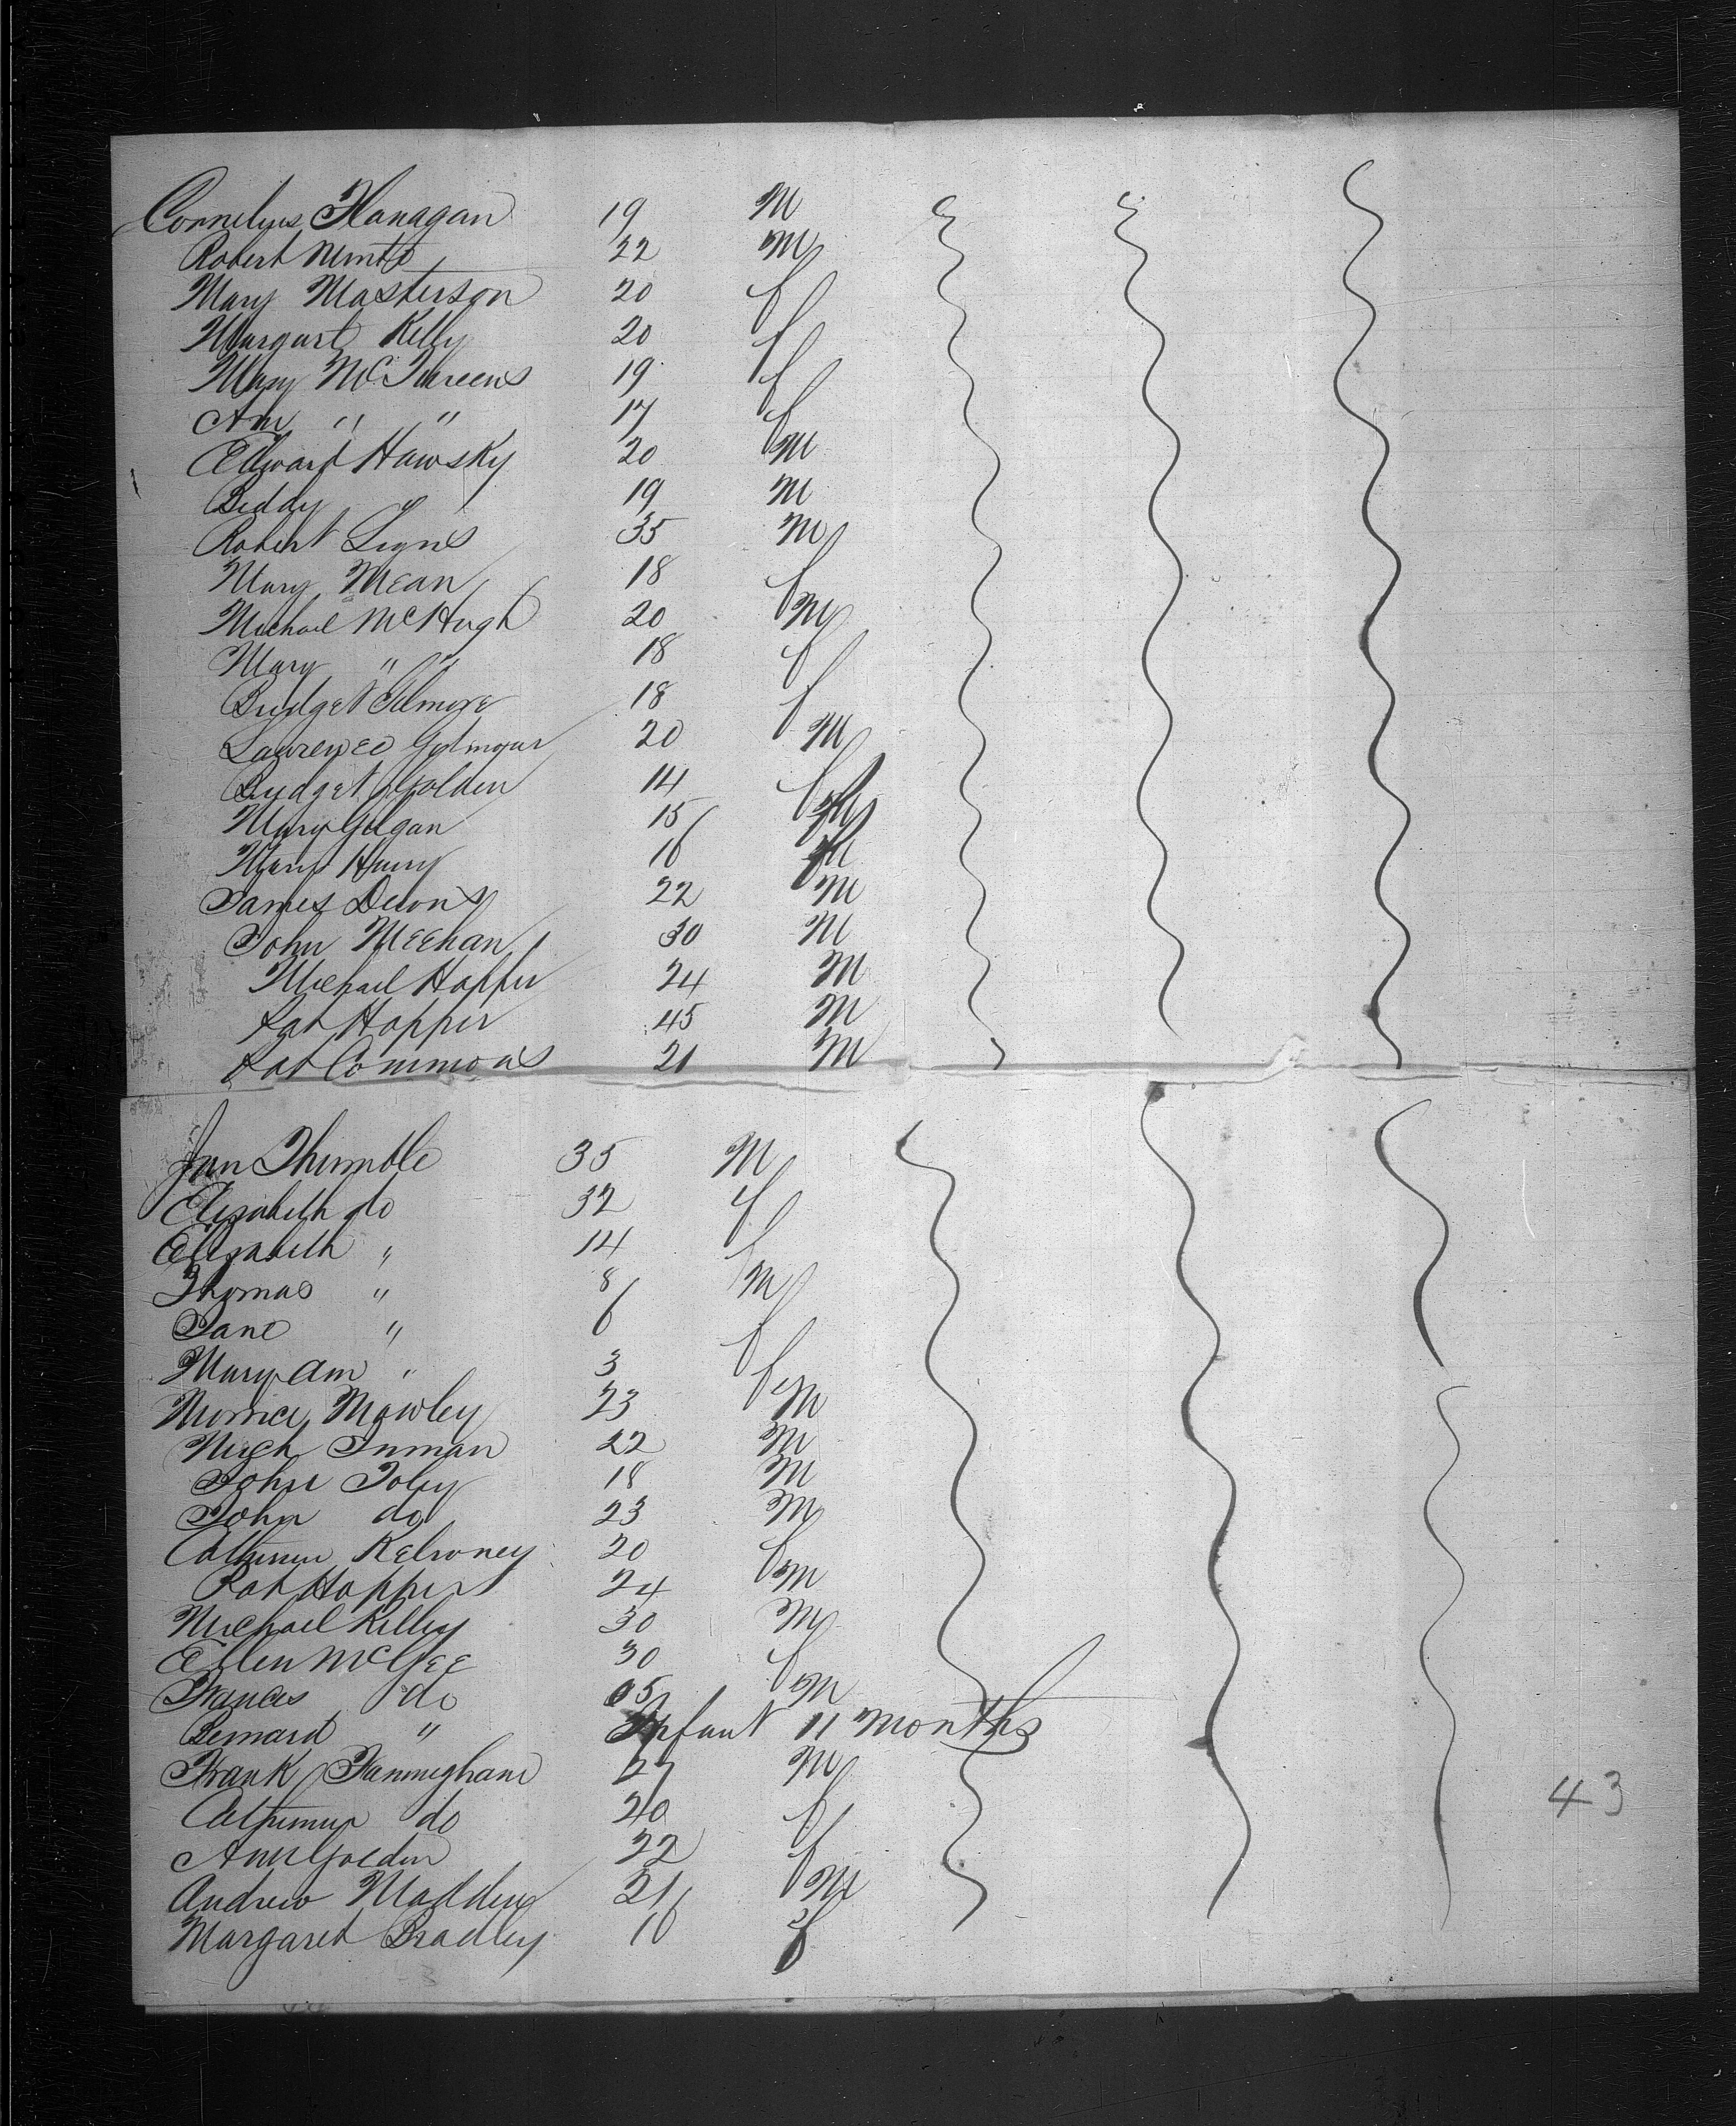 Cornelius Flanagan 19 M
Robert Minto 22 M
Mary Masterson 20 f
Margart Kelly 20 f
Mary 19 f
Ann " " 17 f
Edward Hawsky 20 M
Biddy " 19 M
Robert Ligns 35 M
Mary Mean 18 f
Michael McHugh 20 M
Mary " " 18 f
Bridget Gilmore 18 f
Lawrence 20 M
Bridget Golden 14 f
Mary Gilgan 15 f
Mary 16 f
James 22 M
John Meehan 30 M
Michael Hopper 24 M
Pat Hopper 45 M
Pat Commons 21 M
Thimble 35 M
Elizabeth do 32 f
Elizabeth " 14 f
Thomas " 8 M
Jane " 6 f
Mary Ann " 3 f
Mawley 23 M
Hugh Inman 22 M
John Foley 18 M
John do 23 M
Kelroney 20 f
Pat Hopper 24 M
Michael Kelley 30 M
Ellen McGee 30 f
Frances do 05 M
Bernard " Infant 11 Months
Frank 27 M
do 20 f
Ann Golden 22 f
Andrew Madden 21 M
Margaret Bradley 16 f
43